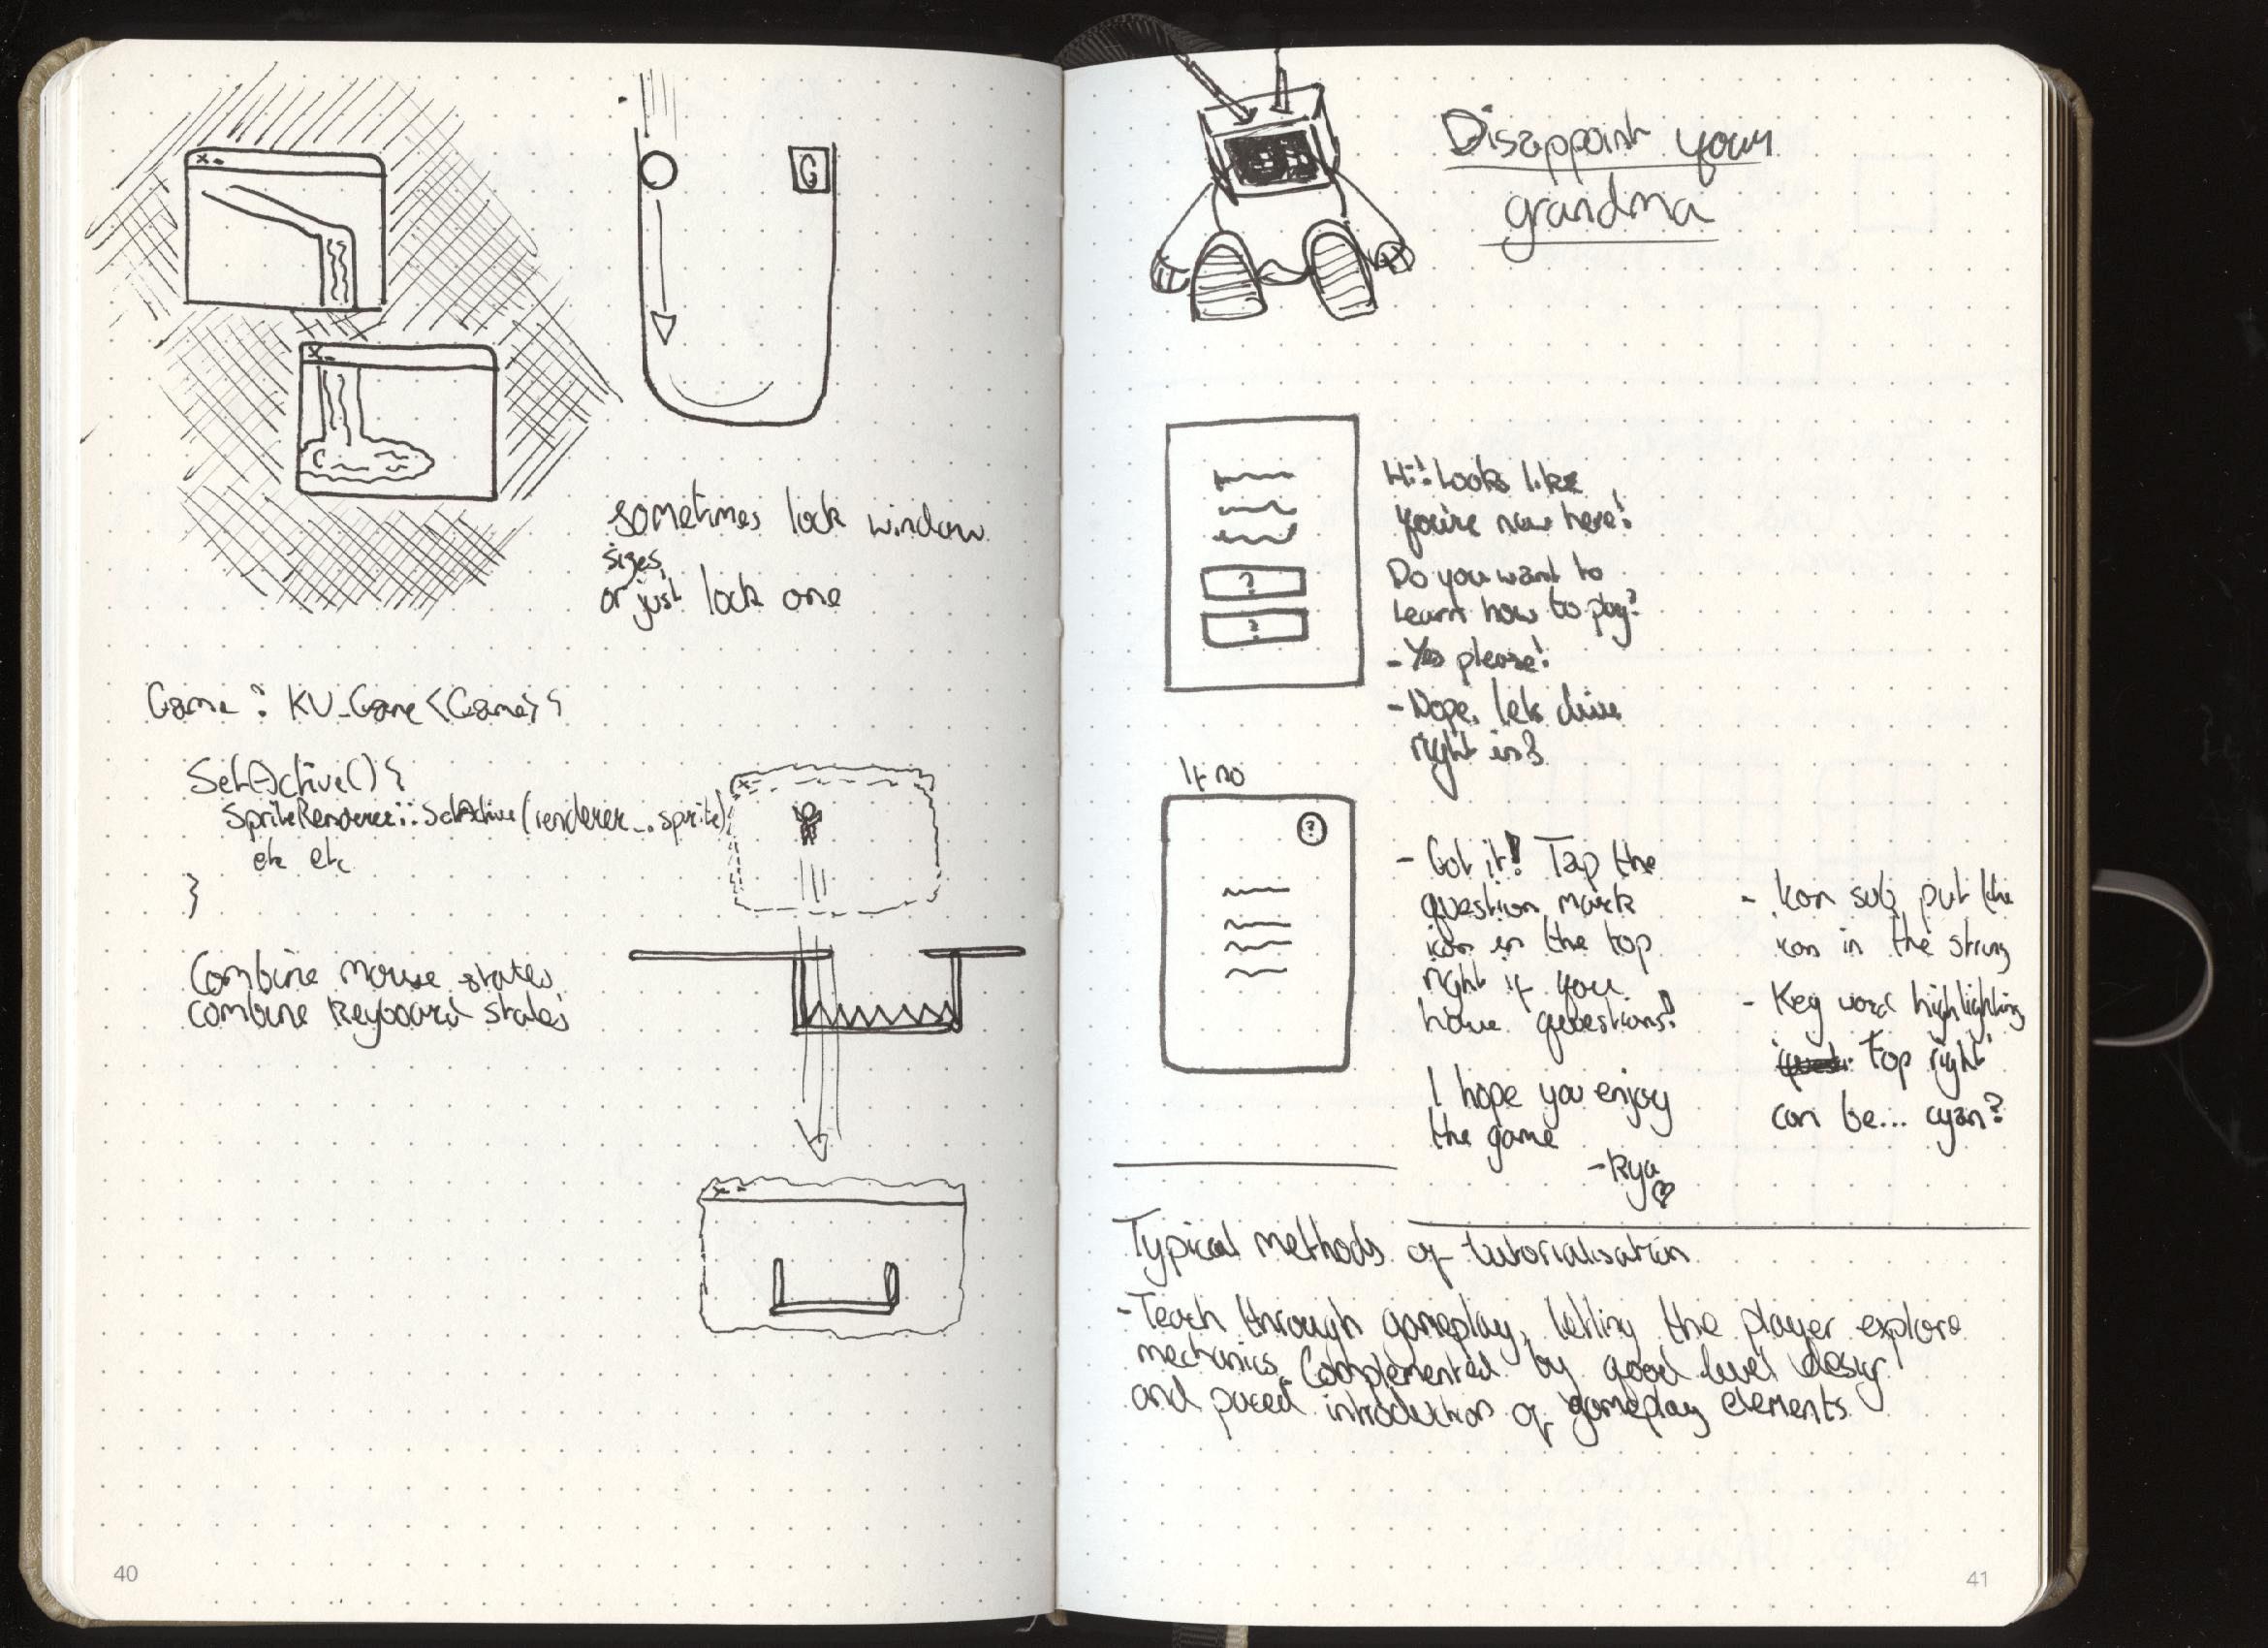 x -
G
x -
sometimes lock window
sizes,
or just lock one
Game : KU_Game<Game>{
SetActive(){
SpriteRenderer::SetActive(renderer_, sprite);
etc etc
}
x -
Combine mouse states
combine keyboard states
x -
40
Disappoint your
grandma
Hi! Looks like
you're new here!
Do you want to
learn how to play?
?
?
- Yes please!
- Nope, lets dive
right in!
If no
?
- Got it! Tap the
question mark
icon in the top
right if you
have questions!
I hope you enjoy
the game
- Rya
- Icon sub, put the
icon in the string
- Key word highlighting
top right
can be... cyan?
Typical methods of tutorialisation
- Teach through gameplay, letting the player explore
mechanics. Complemented by good level design
and paced introduction of gameplay elements
41